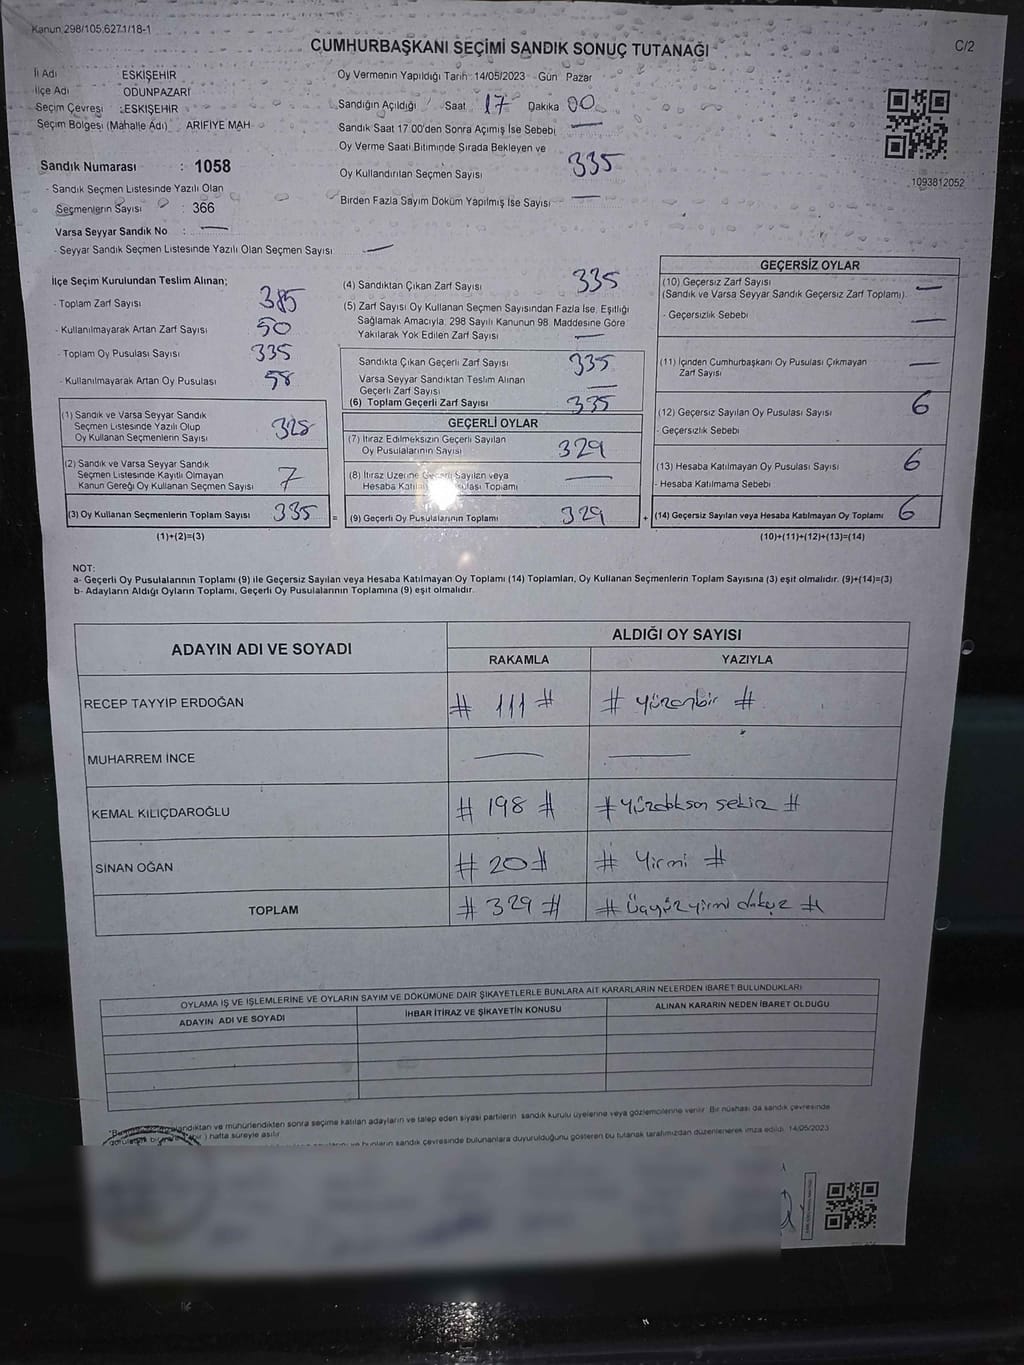 Kanun 298/105,6271/18-1
CUMHURBAŞKANI SEÇİMİ SANDIK SONUÇ TUTANAĞI
C/2
İl Adı : ESKİŞEHİR
İlçe Adı : ODUNPAZARI
Seçim Çevresi : ESKİŞEHİR
Seçim Bölgesi (Mahalle Adı) : ARIFIYE MAH
Sandık Numarası : 1058
- Sandık Seçmen Listesinde Yazılı Olan
Seçmenlerin Sayısı : 366
Varsa Seyyar Sandık No : —
- Seyyar Sandık Seçmen Listesinde Yazılı Olan Seçmen Sayısı —
Oy Vermenin Yapıldığı Tarih 14/05/2023 - Gün Pazar
Sandığın Açıldığı Saat 17 Dakika 00
Sandık Saat 17 00'den Sonra Açımış İse Sebebi —
Oy Verme Saati Bitiminde Sırada Bekleyen ve
Oy Kullandırılan Seçmen Sayısı 335
Birden Fazla Sayım Döküm Yapılmış İse Sayısı —
1093812052
İlçe Seçim Kurulundan Teslim Alınan;
- Toplam Zarf Sayısı 385
- Kullanılmayarak Artan Zarf Sayısı 50
- Toplam Oy Pusulası Sayısı 335
- Kullanılmayarak Artan Oy Pusulası 58
(1) Sandık ve Varsa Seyyar Sandık
Seçmen Listesinde Yazılı Olup
Oy Kullanan Seçmenlerin Sayısı 328
(2) Sandık ve Varsa Seyyar Sandık
Seçmen Listesinde Kayıtlı Olmayan
Kanun Gereği Oy Kullanan Seçmen Sayısı 7
(3) Oy Kullanan Seçmenlerin Toplam Sayısı 335
(1)+(2)=(3)
(4) Sandıktan Çıkan Zarf Sayısı 335
(5) Zarf Sayısı Oy Kullanan Seçmen Sayısından Fazla İse, Eşitliği
Sağlamak Amacıyla, 298 Sayılı Kanunun 98. Maddesine Göre
Yakılarak Yok Edilen Zarf Sayısı —
Sandıkta Çıkan Geçerli Zarf Sayısı 335
Varsa Seyyar Sandıktan Teslim Alınan
Geçerli Zarf Sayısı —
(6) Toplam Geçerli Zarf Sayısı 335
GEÇERLİ OYLAR
(7) İtiraz Edilmeksizin Geçerli Sayılan
Oy Pusulalarının Sayısı 329
(8) İtiraz Üzerine Geçerli Sayılan veya
Hesaba Toplamı —
= (9) Geçerli Oy Pusulalarının Toplamı 329
GEÇERSİZ OYLAR
(10) Geçersiz Zarf Sayısı —
(Sandık ve Varsa Seyyar Sandık Geçersiz Zarf Toplamı)
- Geçersizlik Sebebi —
(11) İçinden Cumhurbaşkanı Oy Pusulası Çıkmayan
Zarf Sayısı —
(12) Geçersiz Sayılan Oy Pusulası Sayısı 6
- Geçersizlik Sebebi
(13) Hesaba Katılmayan Oy Pusulası Sayısı 6
- Hesaba Katılmama Sebebi
+ (14) Geçersiz Sayılan veya Hesaba Katılmayan Oy Toplamı 6
(10)+(11)+(12)+(13)=(14)
NOT:
a- Geçerli Oy Pusulalarının Toplamı (9) ile Geçersiz Sayılan veya Hesaba Katılmayan Oy Toplamı (14) Toplamları, Oy Kullanan Seçmenlerin Toplam Sayısına (3) eşit olmalıdır. (9)+(14)=(3)
b- Adayların Aldığı Oyların Toplamı, Geçerli Oy Pusulalarının Toplamına (9) eşit olmalıdır.
ADAYIN ADI VE SOYADI
ALDIĞI OY SAYISI
RAKAMLA YAZIYLA
RECEP TAYYİP ERDOĞAN # 111 # # yüzonbir #
MUHARREM İNCE — —
KEMAL KILIÇDAROĞLU # 198 # # Yüzdoksan sekiz #
SİNAN OĞAN # 20 # # Yirmi #
TOPLAM # 329 # # Üçyüzyirmi dokuz #
OYLAMA İŞ VE İŞLEMLERİNE VE OYLARIN SAYIM VE DÖKÜMÜNE DAİR ŞİKAYETLERLE BUNLARA AİT KARARLARIN NELERDEN İBARET BULUNDUKLARI
ADAYIN ADI VE SOYADI İHBAR İTİRAZ VE ŞİKAYETİN KONUSU ALINAN KARARIN NEDEN İBARET OLDUĞU
ve mühürlendikten sonra seçime katılan adayların ve talep eden siyasi partilerin sandık kurulu üyelerine veya gözlemcilerine verilir. Bir nüshası da sandık çevresinde
hafta süreyle asılır
bunların sandık çevresinde bulunanlara duyurulduğunu gösteren bu tutanak tarafımızdan düzenlenerek imza edildi. 14/05/2023